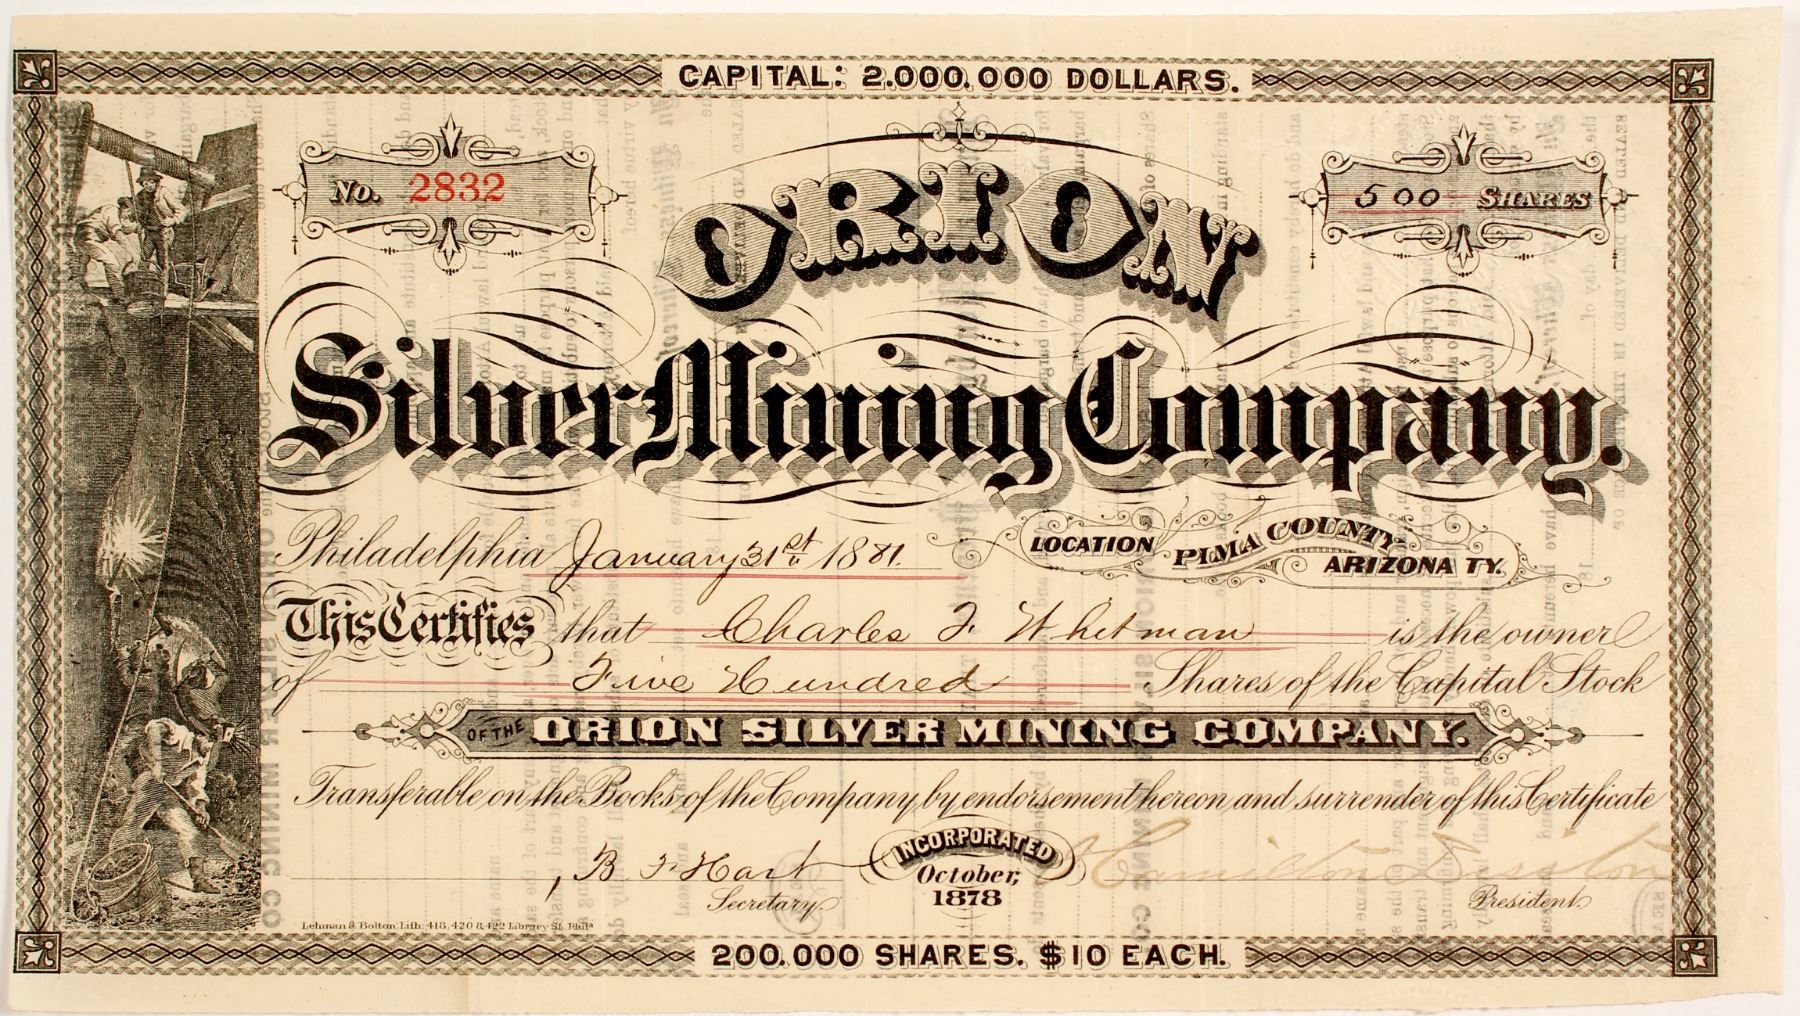 CAPITAL: 2.000.000 DOLLARS.
No. 2832
500 SHARES
ORION
Silver Mining Company.
Philadelphia January 31st 1881.
LOCATION PIMA COUNTY ARIZONA TY.
This Certifies that Charles F Whitman is the owner
of Five Hundred Shares of the Capital Stock
OF THE ORION SILVER MINING COMPANY.
Transferable on the Books of the Company by endorsement hereon and surrender of this Certificate
B F Hart
Secretary.
INCORPORATED
October,
1878
Hamilton
President.
Lehman & Bolton, Lith. 418, 420 & 422 Library St. Phila
200.000 SHARES. $10 EACH.